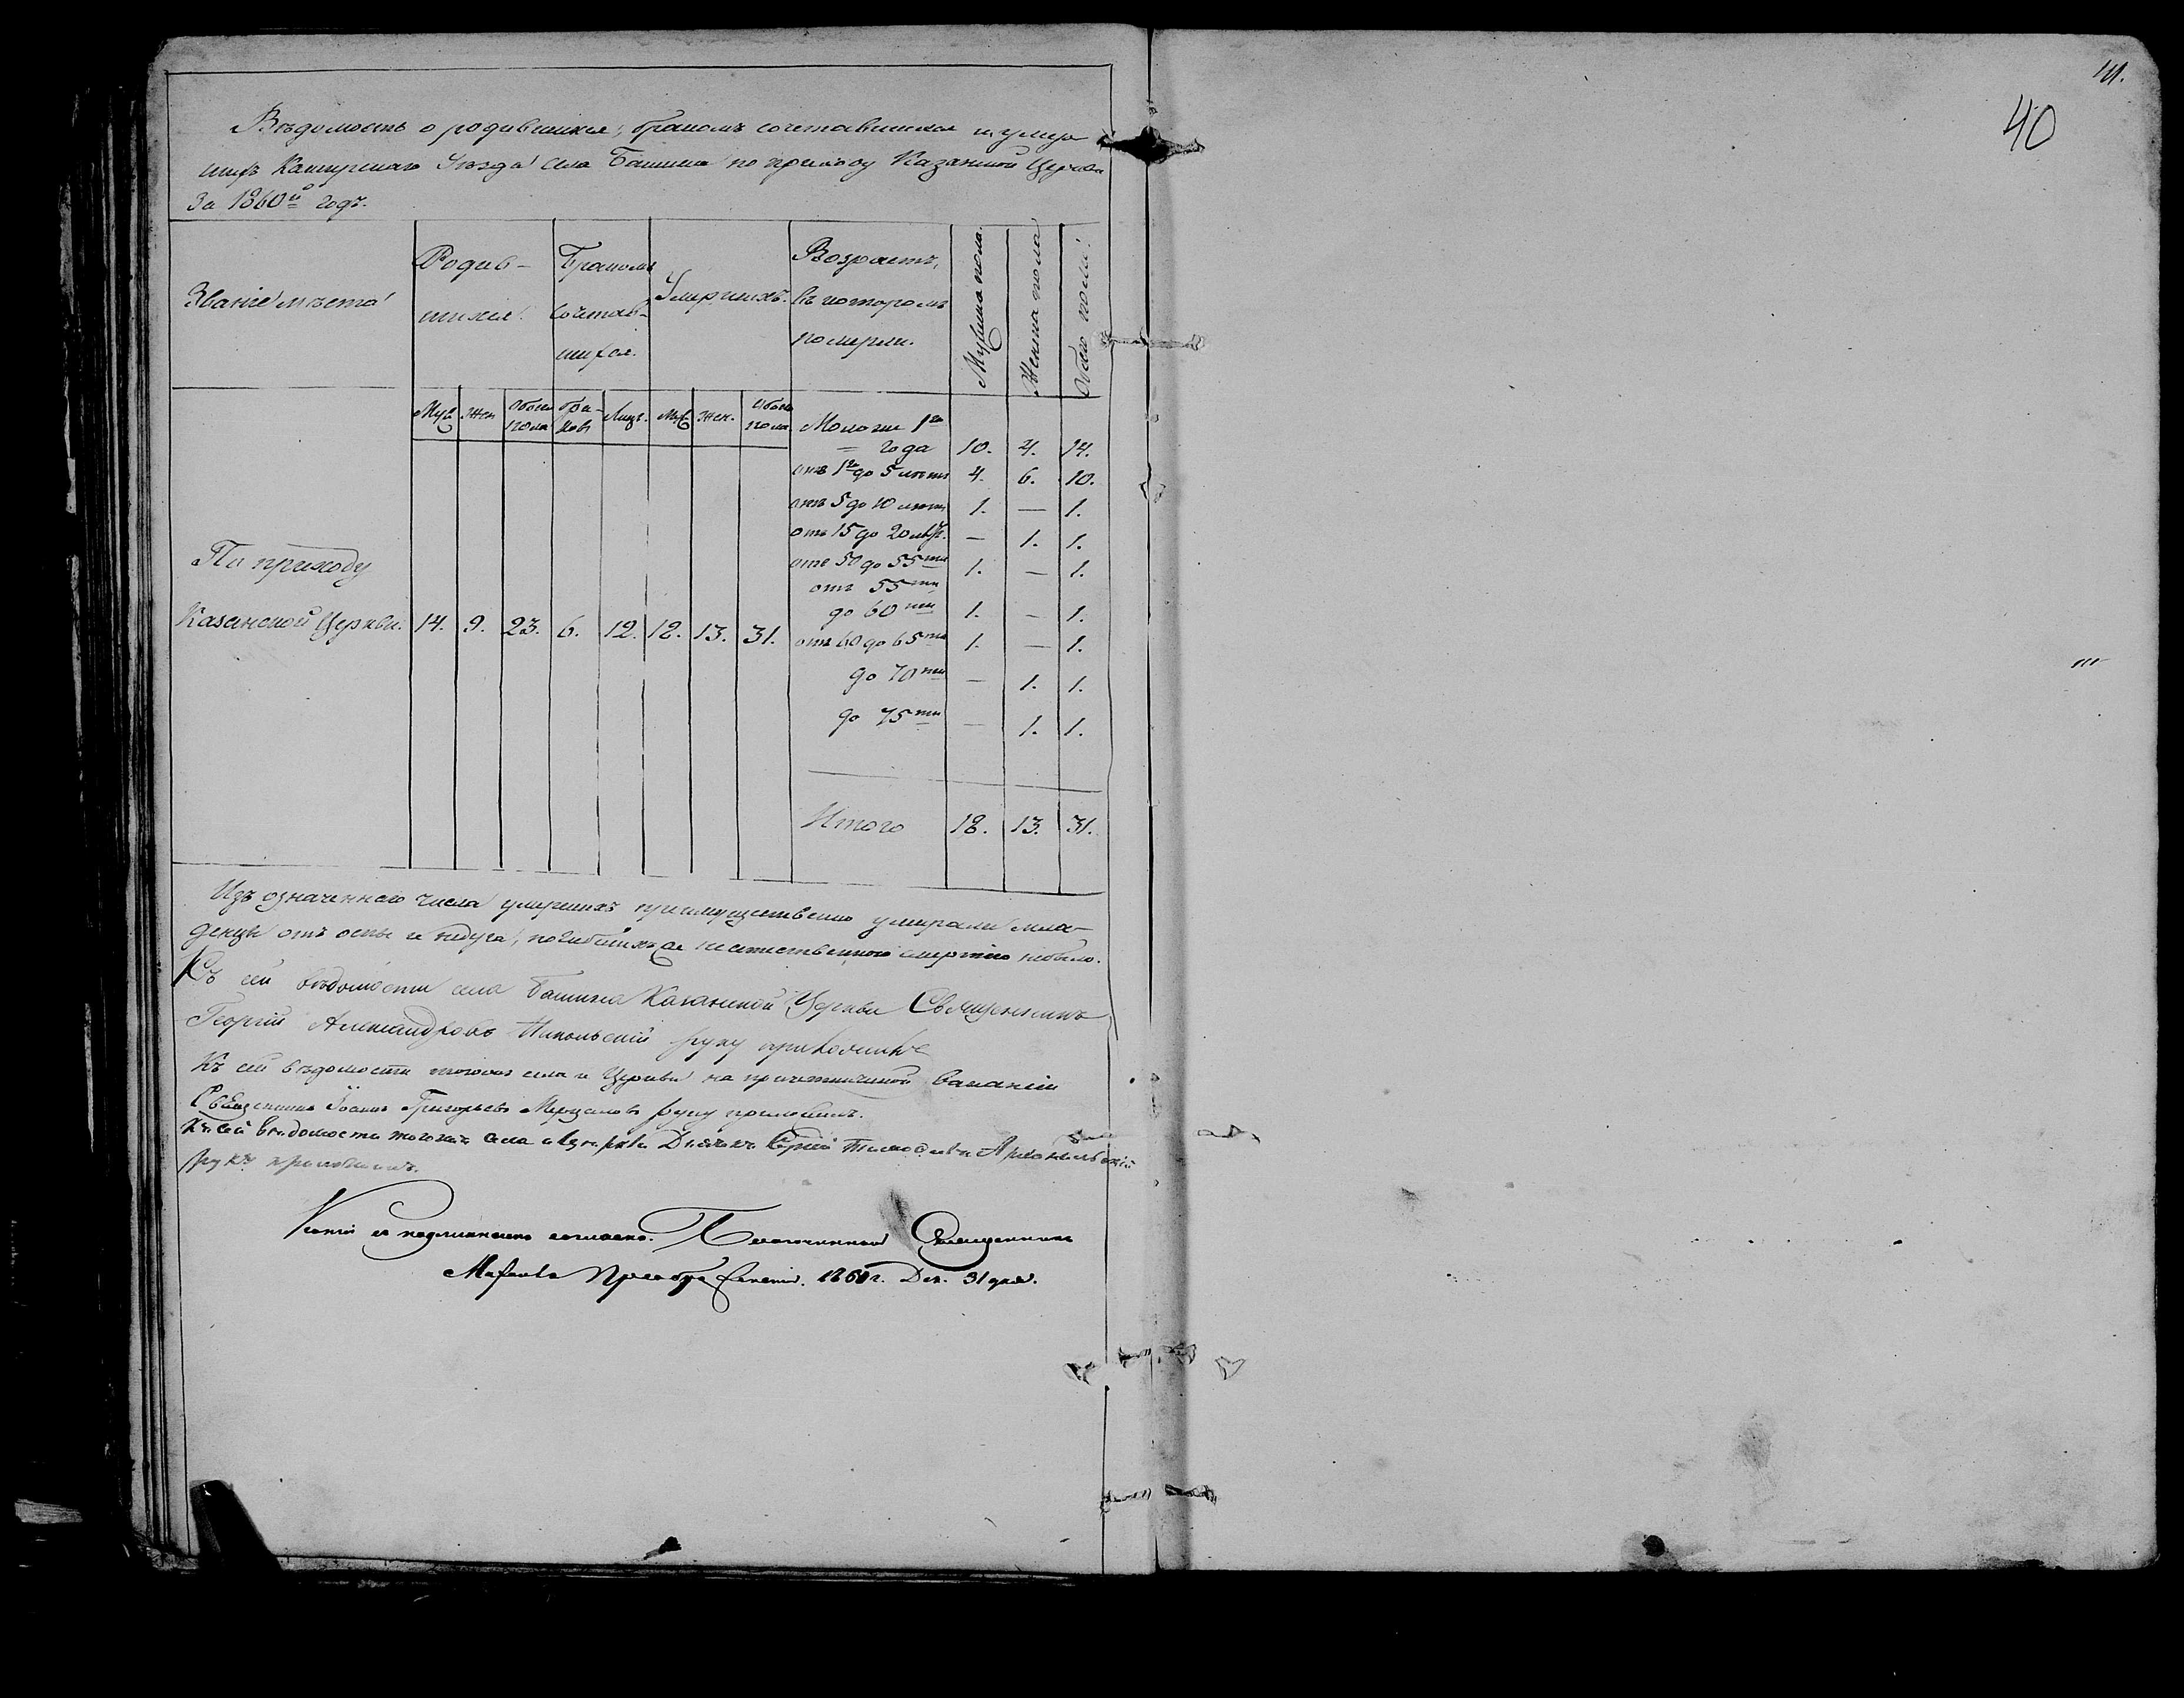 41.
40
Вѣдомость о родившихся, бракомъ сочетавшихся и умер
шихъ Каширскаго Уѣзда села Башина по приходу Казанской Церкви
За 1860й годъ.
Званіе мѣста
Родив-
шихся.
Бракомъ
сочетав-
шихся.
Умершихъ.
Возрастъ,
въ которомъ
померли.
Мужеска пола.
Женска пола
Обоего пола.
Муж Жен Обоего пола бра-ковъ Лицъ. Муж Жен. Обоего пола
Моложе 1го
года 10. 4. 14.
отъ 1го до 5 лѣтъ 4. 6. 10.
отъ 5 до 10 лѣтъ 1. — 1.
отъ 15 до 20 лѣтъ. — 1. 1.
отъ 50 до 55ти 1. — 1.
отъ 55ти
до 60ти 1. — 1.
отъ 60 до 65ти 1. — 1.
до 70ти — 1. 1.
до 75ти — 1. 1.
По приходу
Казанской Церкви. 14. 9. 23. 6. 12. 18. 13. 31.
Итого 18. 13. 31.
Изъ означеннаго числа умершихъ преимущественно умирали мла-
денцы отъ оспы и недуга, погибшихъ же неестественною смертію небыло.
Къ сей вѣдомости села Башина Казанской Церкви Священникъ
Георгій Александровъ Никольскій руку приложилъ
Къ сей вѣдомости тогожъ села и Церкви на причетнической вакансіи
Священникъ Іоаннъ Григорьевъ Мерцаловъ руку приложилъ.
Къ сей вѣдомости тогожъ села и церкви Дьячекъ Сергій Архангельскій
руку приложилъ.
Копія съ подлинникомъ согласна. Благочинный Священникъ
Преображенскій. 1861 г. Дек. 31 дня.